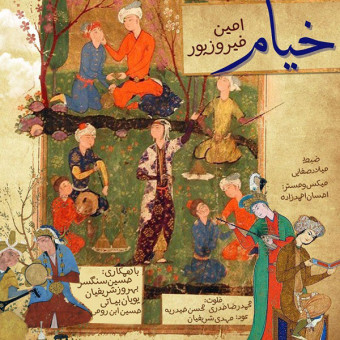 خیام
امین
فیروزپور
ضبط:
میلاد صفایی
میکس و مستر:
احسان احمدزاده
با همکاری:
حسین سنگسر
بهروز شریفیان
پویان بیاتی
حسین ابن رومی
فلوت:
محمدرضا صدری
محسن حیدریه
عود: مهدی شریفیان